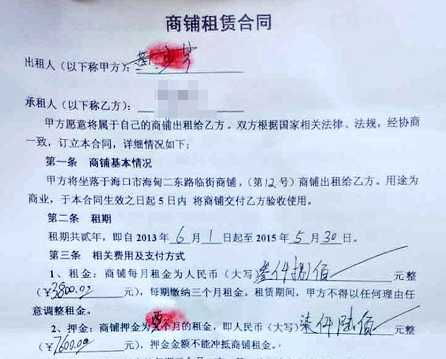 商铺租赁合同
出租人(以下称甲方):
承租人(以下称乙方):
甲方愿意将属于自己的商铺出租给乙方。双方根据国家相关法律、法规,经协商
一致,订立本合同,详细情况如下:
第一条 商铺基本情况
甲方将坐落于海口市海甸二东路临街商铺,(第12号)商铺出租给乙方。用途为
商业,于本合同生效之日起5日内 将商铺交付乙方验收使用。
第二条 租期
租期共贰年,即自2013年6月1日起至2015年5月30日。
第三条 相关费用及支付方式
1、租金:商铺每月租金为人民币(大写)叁仟捌佰元整
(¥3800.00元),每期缴纳三个月租金。租赁期间,甲方不得以任何理由任
意调整租金。
2、押金:商铺押金为两个月的租金,即人民币(大写)柒仟陆佰元整
(¥7600.00元),押金金额不能冲抵商铺租金。